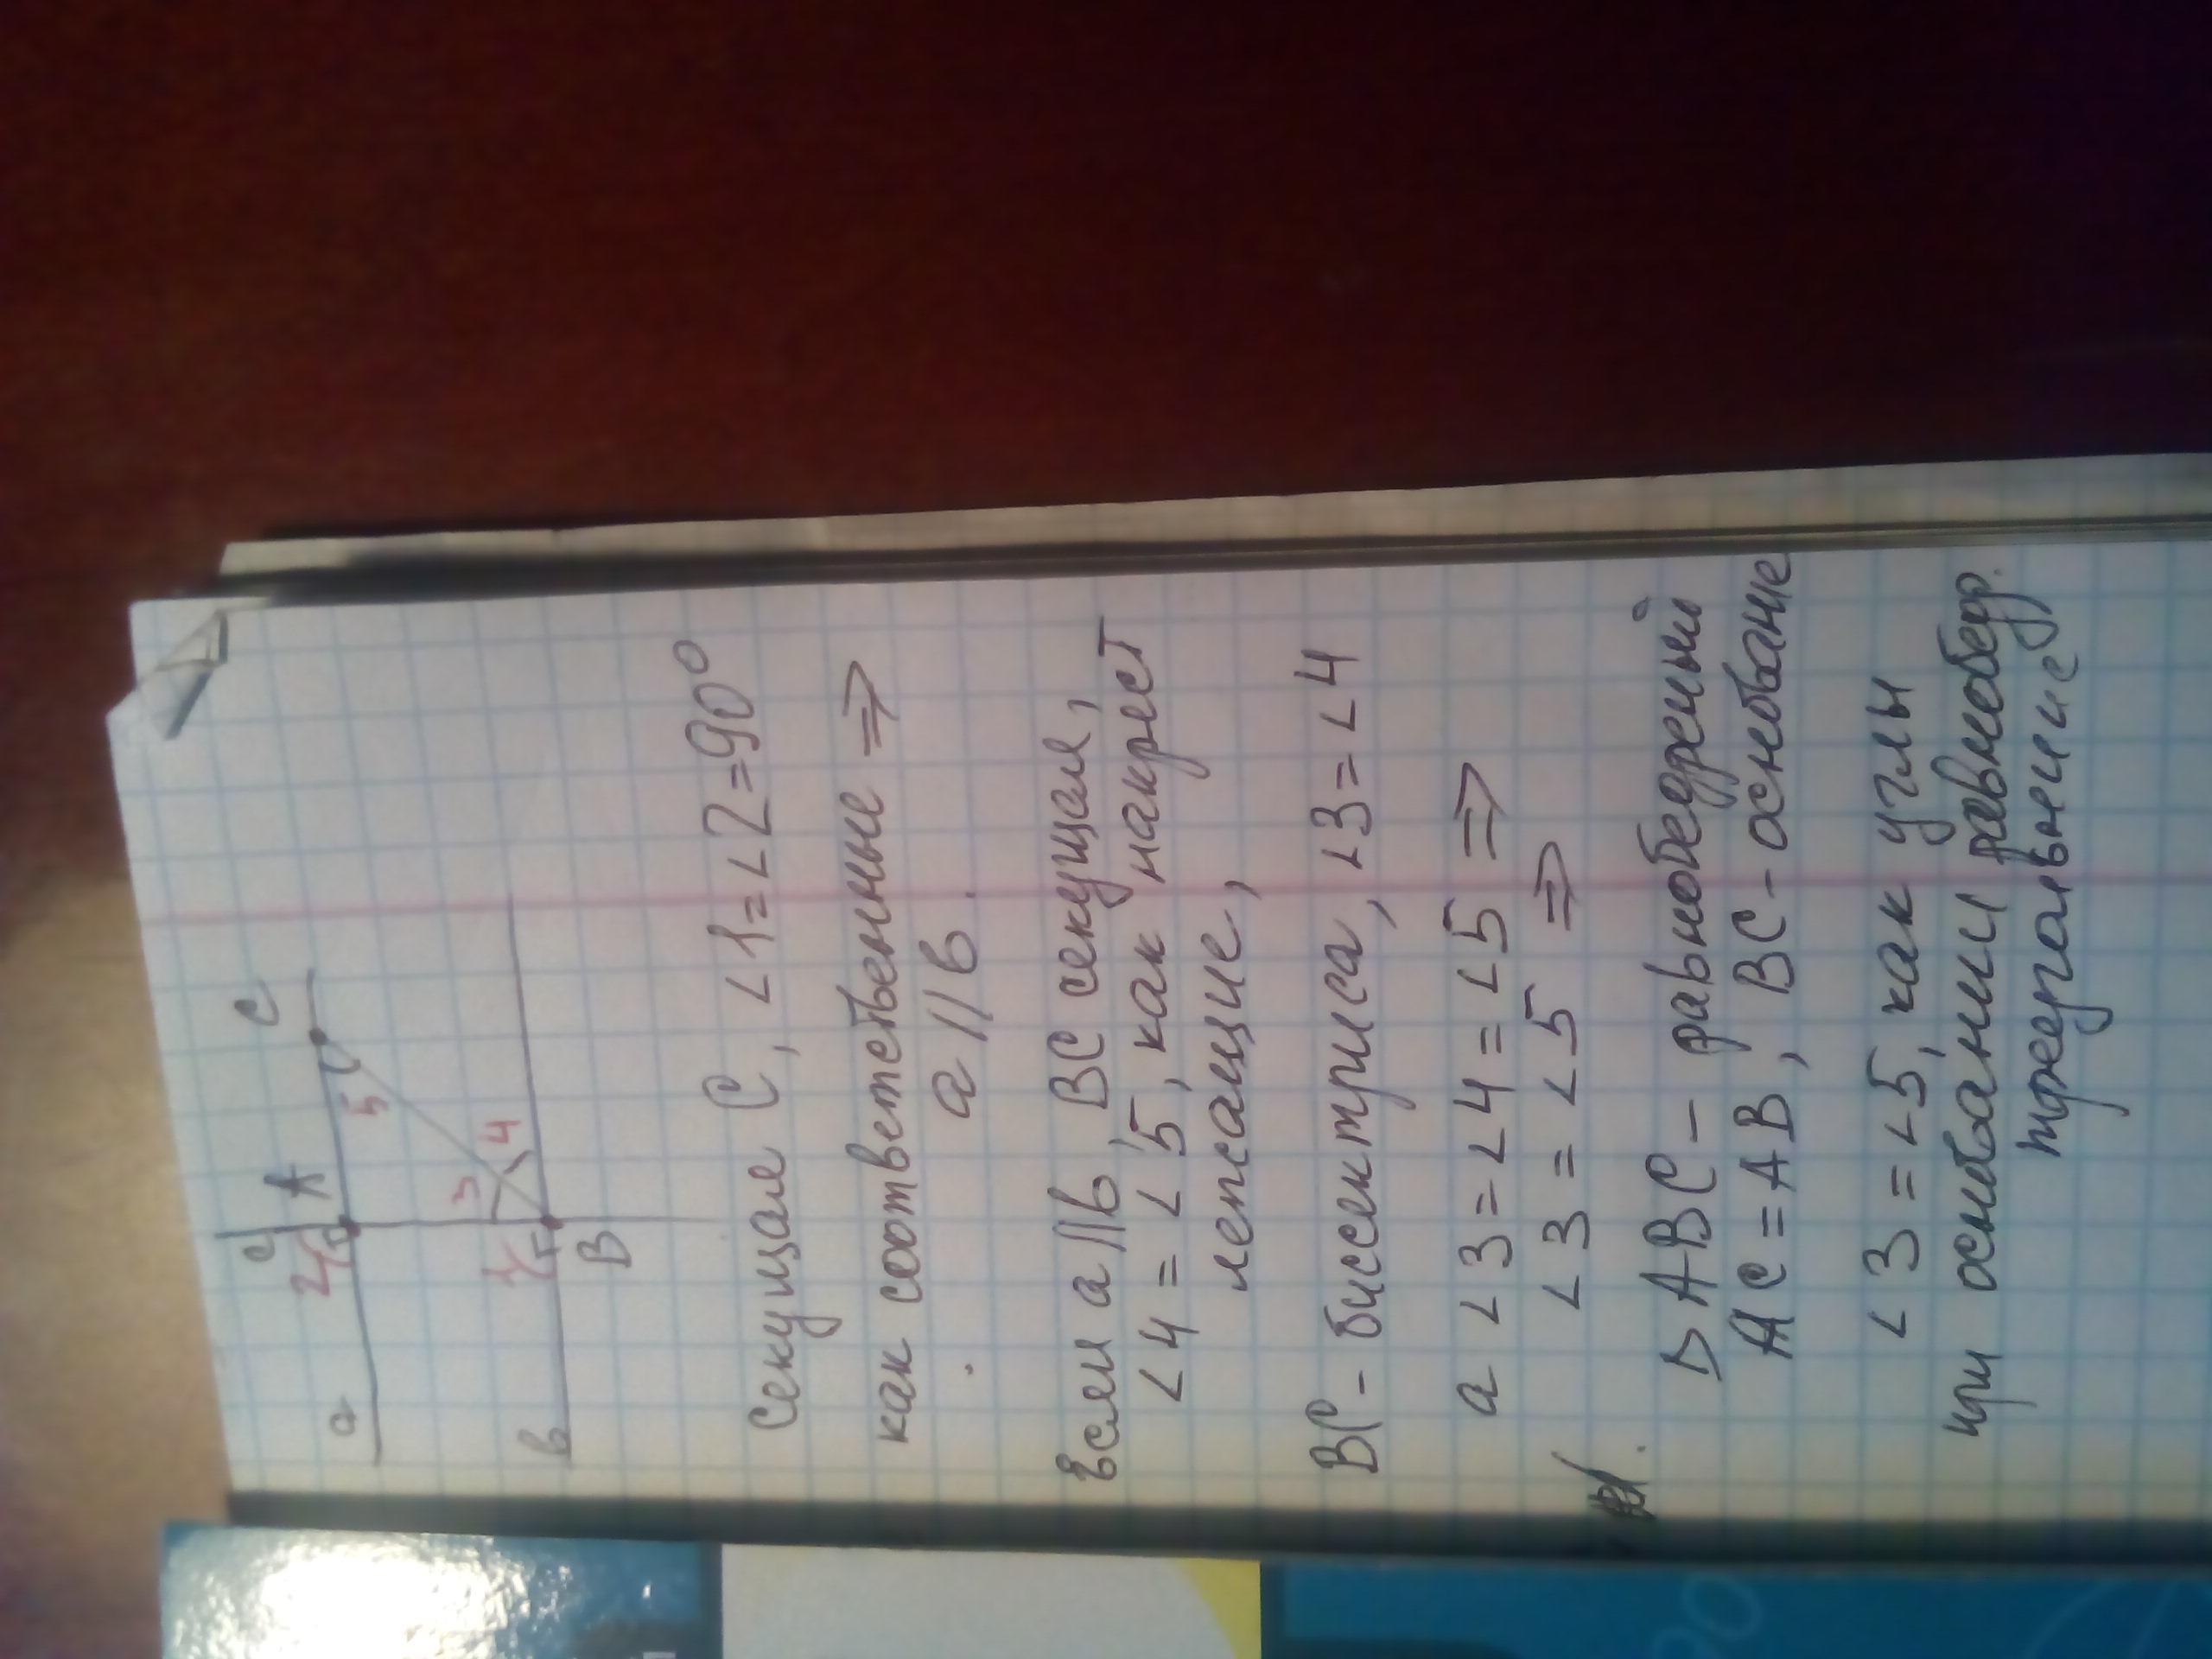 c
C
a
2
A
5
3
4
1
в
B
Секущая C, <1=<2=90°
как соответственные =>
a // в.
Если a//в, BC секущая,
<4 = <5, как накрест
лежащие,
BC - биссектриса, <3=<4
а <3=<4=<5 =>
<3 = <5 =>
∆ ABC - равнобедренный
AC=AB, BC-основание
<3=<5, как углы
при основании равнобедр.